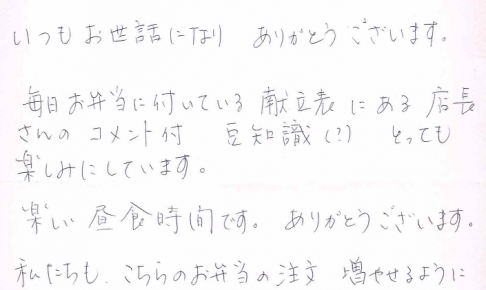 いつもお世話になり ありがとうございます。
毎日お弁当に付いている 献立表にある 店長
さんの コメント付 豆知識(?) とっても
楽しみにしています。
楽しい 昼食時間です。 ありがとうございます。
私たちも、こちらのお弁当の注文 増やせるように